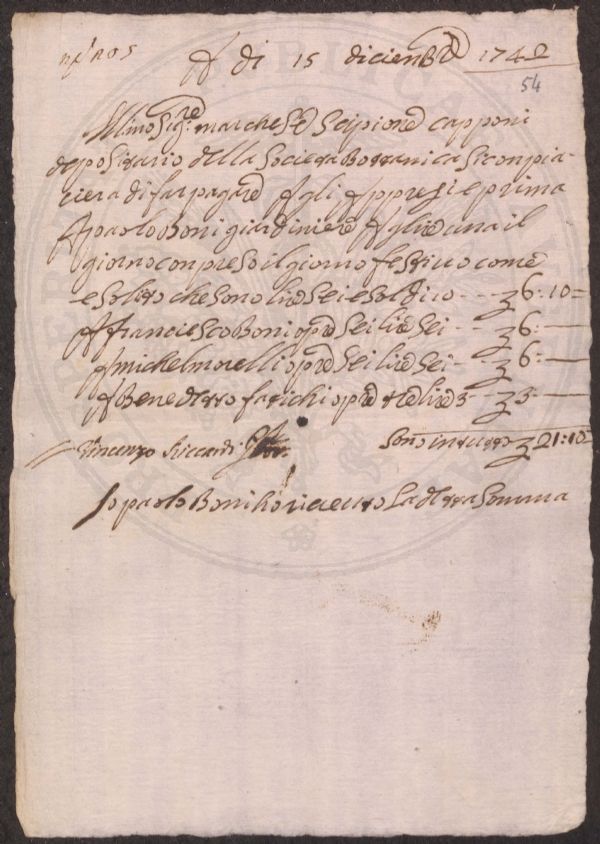 A di 15 dicienbre 1742
54
Ill.mo Sig.re marchese Scipione capponi
depositario della Societa Bottanica Si conpia-
ciera di far pagare Agli Appresi e prima
A paolo Boni giardiniere A lire una il
giorno conpreso il giorno festivo come
e Solito che sono lire Sei e Soldi co - - - 6:10=
A franciesco Boni opre Sei lire Sei - - 6: —
A michel morelli opre Sei lire Sei - - 6: —
A Benedetto farichi opre tre lire 3 - - 3 —
Vincenzo Riccardi Sono in tutto 21:10=
Io paolo Boni ho riceuto La detta Somma